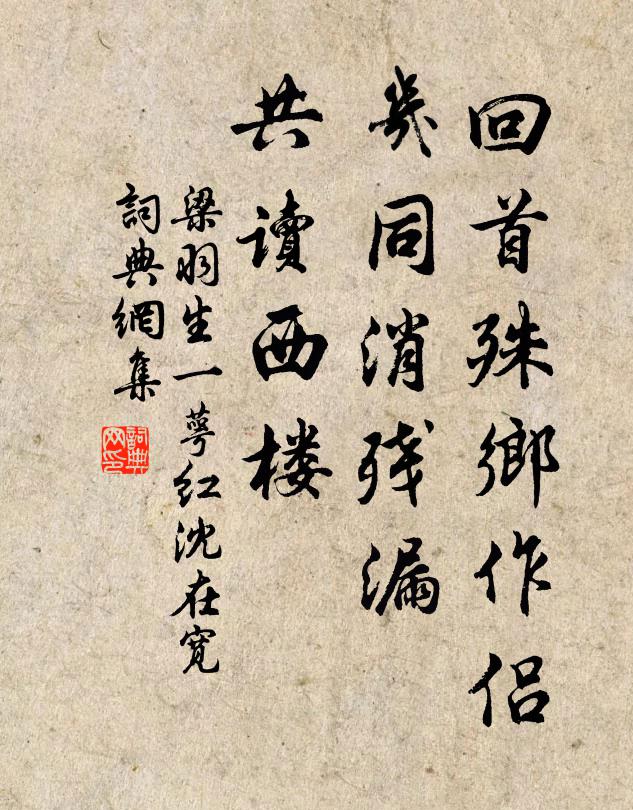 回首殊鄉作侶
幾同消残漏
共讀西楼
梁羽生一萼红沈在寛
詞典網集
詞典网印